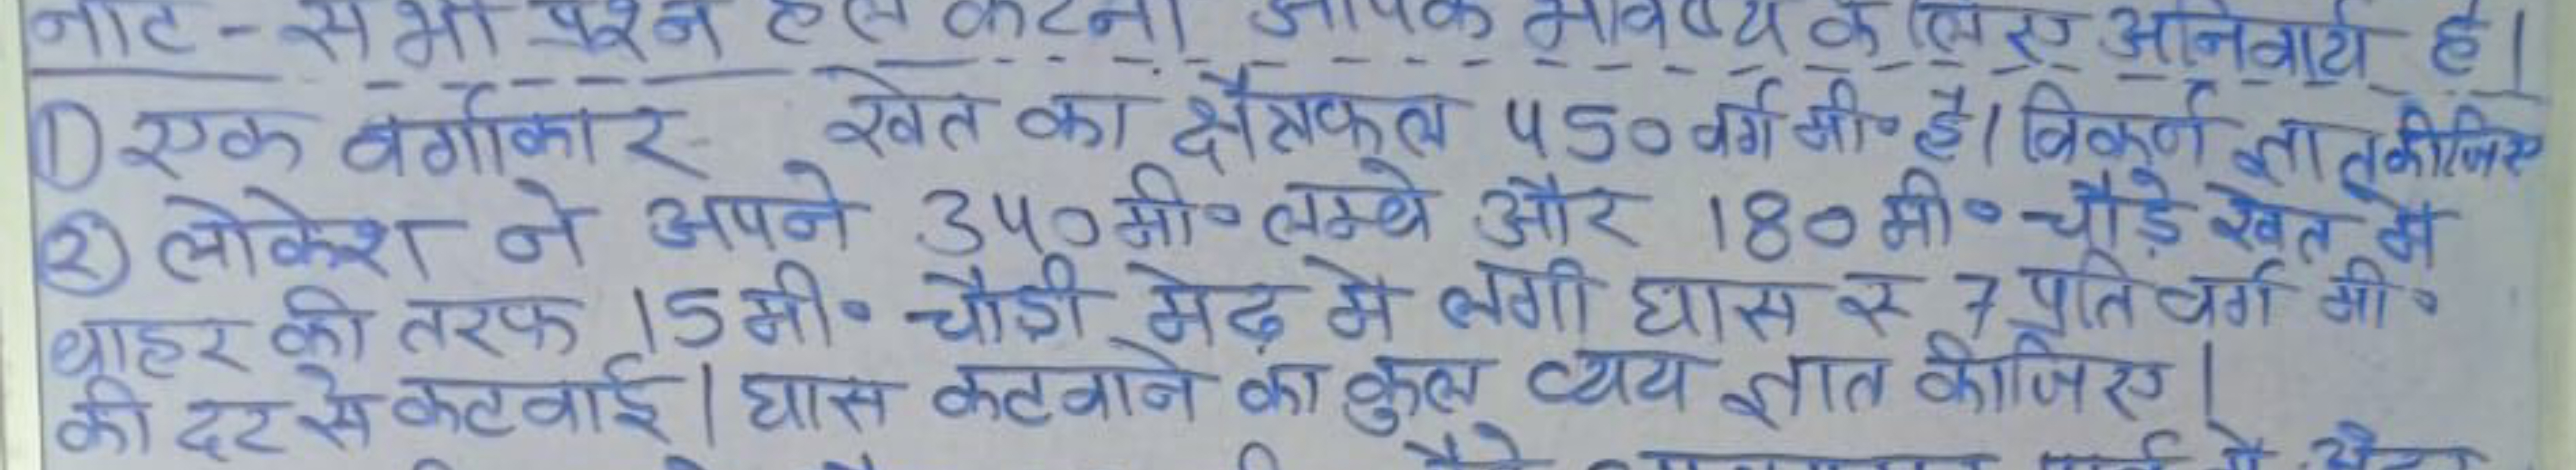 नोट - सभी प्रश्न हल करना आपके भविष्य के लिए अनिवार्य है।
① एक वर्गाकार खेत का क्षेत्रफल 450 वर्ग मी० है। विकर्ण ज्ञात कीजिए
② लोकेश ने अपने 340 मी० लम्बे और 180 मी० चौड़े खेत में
बाहर की तरफ 15 मी० चौड़ी मेढ़ मे लगी घास रू 7 प्रति वर्ग मी०
की दर से कटवाई। घास कटवाने का कुल व्यय ज्ञात कीजिए।